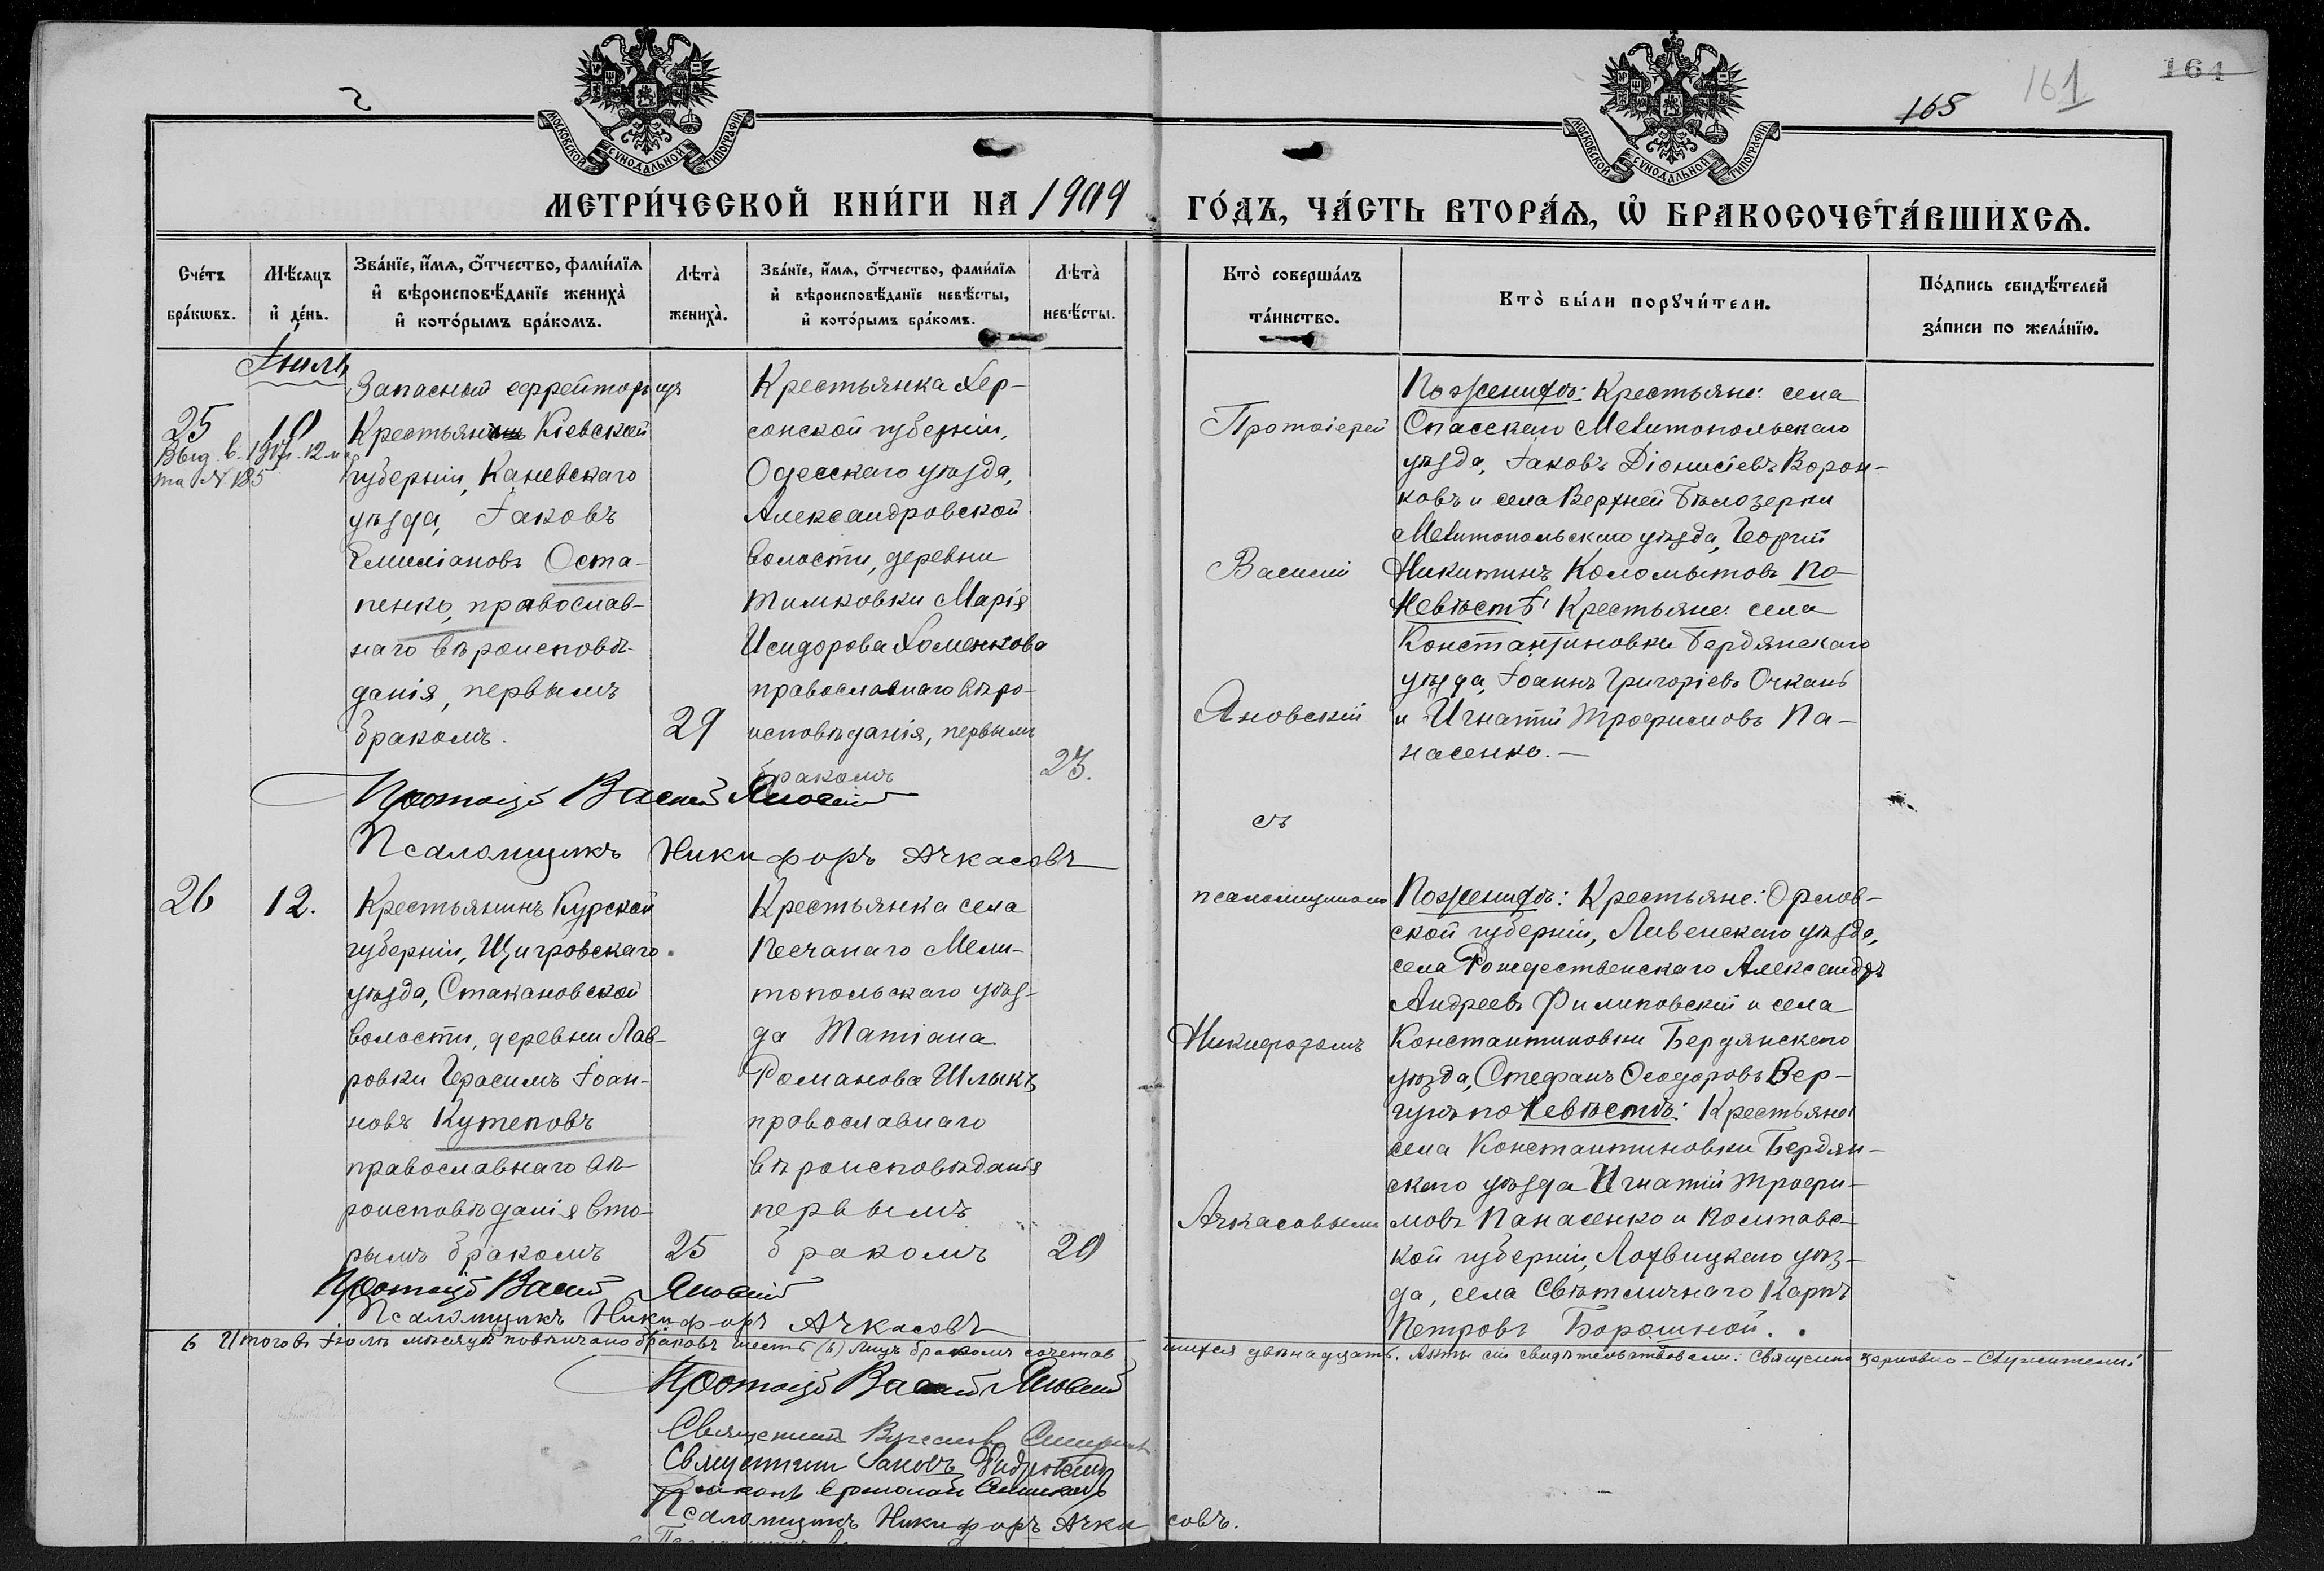 МОСКОВСКОЙ СѴНОДАЛЬНОЙ ТИПОГРАФІИ.
МОСКОВСКОЙ СѴНОДАЛЬНОЙ ТИПОГРАФІИ.
165
161
164
МЕТРИ́ЧЕСКОЙ КНИ́ГИ НА 1909 ГО́ДЪ, ЧА́СТЬ ВТОРА́Ѧ, Ѡ҆ БРАКОСОЧЕТА́ВШИХСѦ.
Сче́тъ
бра́кѡвъ.
Мѣ́сяцъ
и҆ де́нь.
Зва́нїе, и҆́мѧ, ѻ҆́тчество, фами́лїѧ
и҆ вѣроисповѣ́данїе жениха̀
и҆ кото́рымъ бра́комъ.
Лѣта̀
жениха̀.
Зва́нїе, и҆́мѧ, ѻ҆́тчество, фами́лїѧ
и҆ вѣроисповѣ́данїе невѣ́сты,
и҆ кото́рымъ бра́комъ.
Лѣта̀
невѣ́сты.
Кто̀ соверша́лъ
та́инство.
Кто̀ бы́ли порꙋчи́тели.
По́дпись свидѣ́телей
за́писи по жела́нїю.
Іюль
25
10
Выд. в. 1917 г. 12 м
та № 185
Запасный ефрейторъ изъ
Крестьянъ Кіевской
губерніи, Каневскаго
уѣзда, Іаковъ
Емиліановъ Оста-
пенко, православ-
наго вѣроисповѣ-
данія, первымъ
бракомъ.
29
Крестьянка Хер-
сонской губерніи,
Одесскаго уѣзда,
Александровской
волости, деревни
Тимковки Марія
Исидорова Хоменкова
православнаго вѣро-
исповѣданія, первымъ
бракомъ
23.
Протоіерей
Василій
Яновскій
съ
псаломщикомъ
Никифоромъ
Ачкасовымъ
По женихѣ: Крестьяне: села
Спасскаго Мелитопольскаго
уѣзда, Іаковъ Діонисіевъ Ворон-
ковъ и села Верхней Бѣлозерки
Мелитопольскаго уѣзда, Георгій
Никитинъ Коломытовъ По
Невѣстѣ: Крестьяне: села
Константиновки Бердянскаго
уѣзда, Іоаннъ Григоріевъ Очкань
и Игнатій Трофимовъ Па-
насенко.—
Протоіер Василій Яновскій
Псаломщикъ Никифоръ Ачкасовъ
26
12.
Крестьянинъ Курской
губерніи, Щигровскаго
уѣзда, Стакановской
волости, деревни Лав-
ровки Герасимъ Іоан-
новъ Кутеповъ
православнаго вѣ-
роисповѣданія вто-
рымъ бракомъ
25
Крестьянка села
Песчанаго Мели-
топольскаго уѣз-
да Татіана
Романова Шлыкъ
православнаго
вѣроисповѣданія
первымъ
бракомъ
20
По женихѣ: Крестьяне: Орлов-
ской губерніи, Ливенскаго уѣзда,
села Рождественскаго Александръ
Андреевъ Филиповскій и села
Константиновки Бердянскаго
уѣзда, Стефанъ Ѳеодоровъ Вер-
гунъ по Невѣстѣ: Крестьяне
села Константиновки Бердян-
скаго уѣзда Игнатій Трофи-
мовъ Панасенко и Полтавс-
кой губерніи, Лохвицкаго уѣз-
да, села Свѣтличнаго Карпъ
Петровъ Борошной.
Протоіер Василій Яновскій
Псаломщикъ Никифоръ Ачкасовъ
6 Итого въ Іюлѣ мѣсяцѣ повѣнчано браковъ шесть (6) лицъ бракомъ сочетав
шихся двѣнадцать. Акты сіи свидѣтельствовали: Священно церковно-Служители:
Протоіер Василій Яновскій
Священникъ
Священникъ Іаковъ
Псаломщикъ Никифоръ Ачка
совъ.